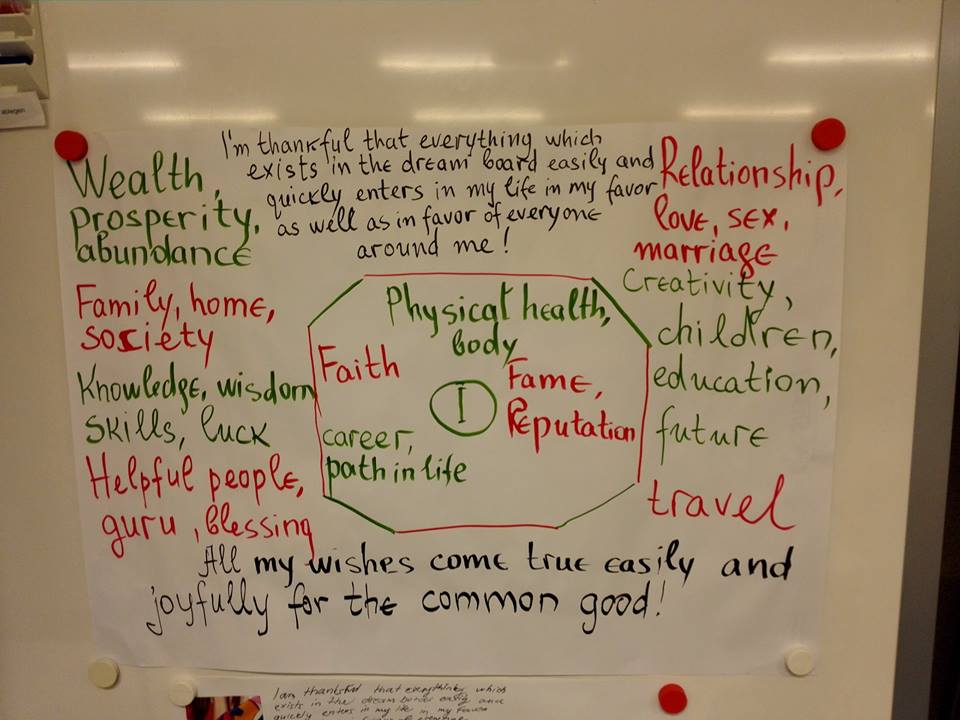 I'm thankful that everything which
exists in the dream board easily and
quickly enters in my life in my favor
as well as in favor of everyone
around me!
Wealth,
prosperity,
abundance
Family, home,
society
Knowledge, wisdom
skills, luck
Helpful people,
guru, blessing
Physical health,
body
Faith
I
Fame,
Reputation
career,
path in life
Relationship,
love, sex,
marriage
Creativity,
children,
education,
future
travel
All my wishes come true easily and
joyfully for the common good!
I am thankful that everything which
exists in the dream easily and
quickly enters in my life in my favor